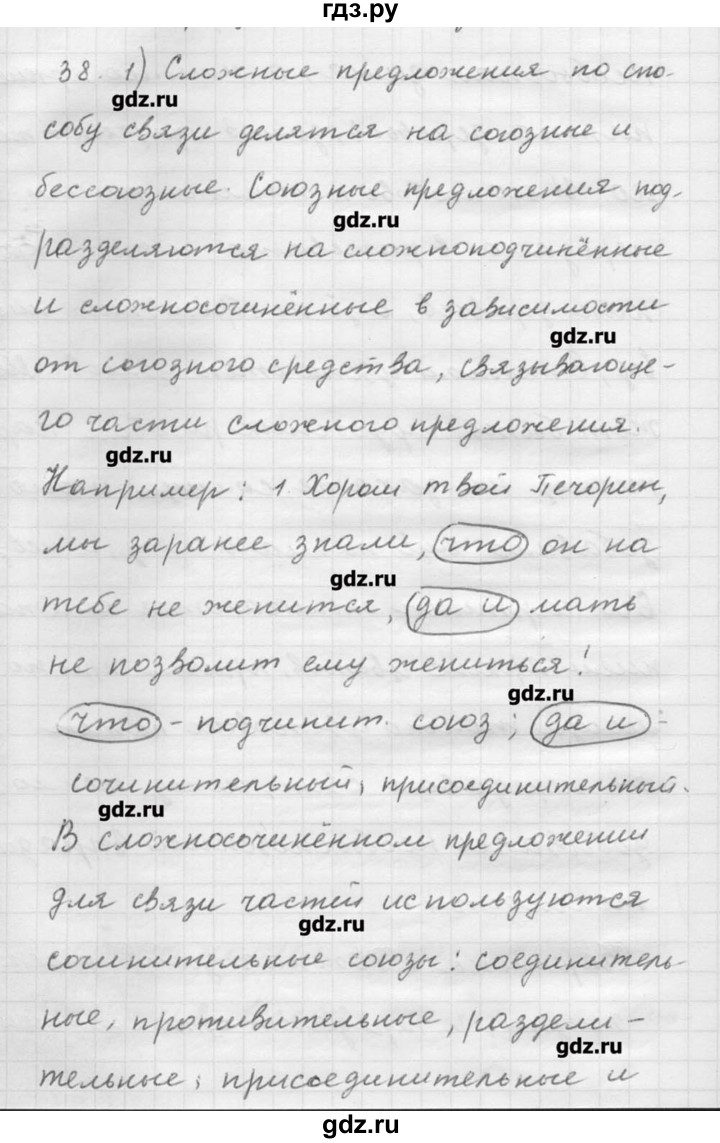 гдз.ру
38. 1) Сложные предложения по спо-
gdz.ru
собу связи делятся на союзные и
бессоюзные. Союзные предложения под-
gdz.ru
разделяются на сложноподчинённые
и сложносочинённые в зависимости
gdz.ru
от союзного средства, связывающе-
го части сложного предложения.
gdz.ru
Например: 1. Хором твой Печорин,
мы заранее знали, что он на
gdz.ru
тебе не женится, да и мать
не позволит ему жениться!
gdz.ru
что - подчинит. союз; да и -
сочинительный, присоединительный.
gdz.ru
В сложносочинённом предложении
для связи частей используются
gdz.ru
сочинительные союзы: соединитель-
ные, противительные, раздели-
gdz.ru
тельные, присоединительные и
gdz.ru